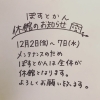 ぽすとかん
休館のお知らせ
12月2日(月)～7日(木)
メンテナンスのため
ぽすとかんは全体が
休館となります。
よろしくお願い致します。